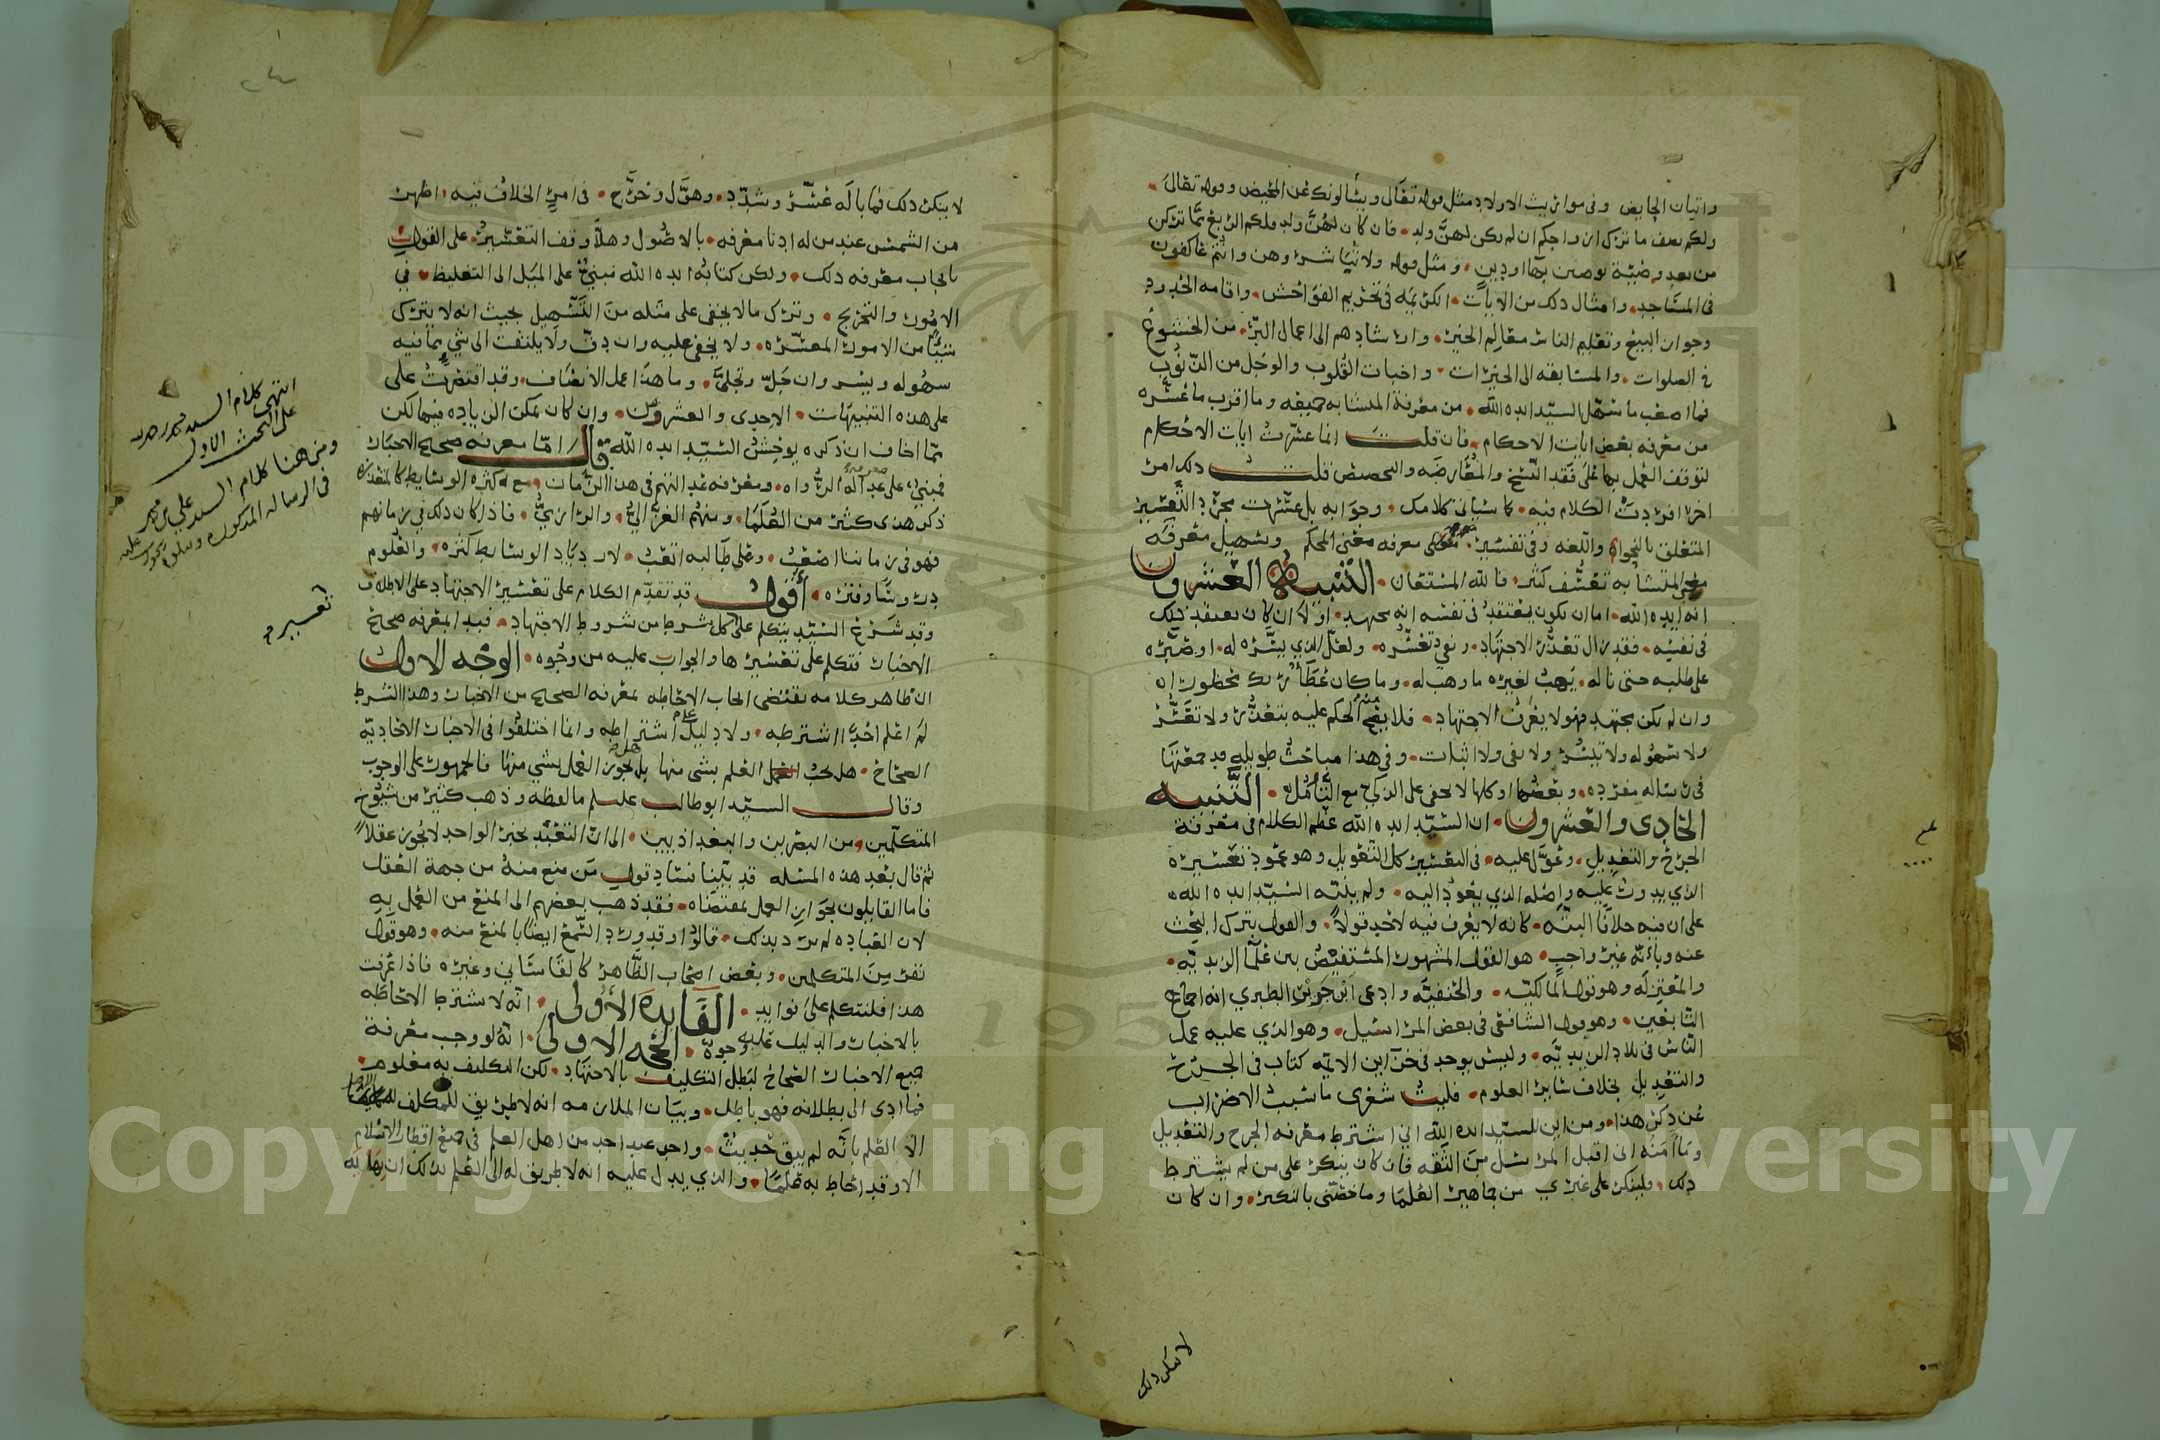 واتيان الحايض وفي مواريث الاولاد مثل قوله تعالى ويسالونك عن المحيض وقوله تعالى
ولكم نصف ما ترك ازواجكم ان لم يكن لهن ولد فان كان لهن ولد فلكم الربع مما تركن
من بعد وصية يوصين بها او دين ومثل قوله ولا تباشروهن وانتم عاكفون
في المساجد وامثال ذلك من الايات الكريمه في تحريم الفواحش واقامه الحدود
وجواز البيع وتعليم الناس معالم الخير وارشادهم الى اعمال البر من الخشوع
في الصلوات والمسابقه الى الخيرات واخبات القلوب والوجل من الذنوب
فما اصعب ما سهل السيد ايده الله من معرفة المتشابه جميعه وما اقرب ما عسره
من معرفه بعض ايات الاحكام فان قلت انما عسرت ايات الاحكام
لتوقف العمل بها على فقد النسخ والمعارضه والتخصيص قلت ذلك امر
اخر افردت الكلام فيه كما سياتي كلامك وجوابه بل عسرت مجرد التفسير
المتعلق بالنحو واللغه وفي تفسير معرفه معنى المحكم وتسهيل معرفه
معنى المتشابه تعسف كثير فالله المستعان التنبيه العشرون
انه ايده الله اما ان يكون يعتقد في نفسه انه مجتهد اولا ان كان يعتقد ذلك
في نفسه فقد زال تعذر الاجتهاد ونفي تعسره ولعل الذي يسره له او صبره
على طلبه حتى ناله يهب لغيره ما وهب له وما كان عطاء ربك محظورا
وان لم يكن مجتهد فهو لا يعرف الاجتهاد فلا يصح منه الحكم عليه بتعذر ولا تعسر
ولا سهوله ولا تيسر ولا نفي ولا اثبات وفي هذا مباحث طويله قد جمعتها
في رساله مفرده وبعضها او كلها لا يخفى على الذكي مع التأمل التنبيه
الحادي والعشرون ان السيد ايده الله عظم الكلام في معرفة
الجرح والتعديل وعول عليه في التعسير كل التعويل وهو عمود تعسيره
الذي يدور عليه واصله الذي يعود اليه ولم ينبه السيد ايده الله
على ان فيه خلافا البته كانه لا يعرف فيه لاحد قولا والقول بترك البحث
عنه وبانه غير واجب هو القول المشهور المستفيض بين علما الزيديه
والمعتزله وهو قول المالكيه والحنفيه وادعى ابن جرير الطبري انه اجماع
التابعين وهو قول الشافعي في بعض المراسيل وهو الذي عليه عمل
الناس في بلاد الزيديه وليس يوجد في خزاين الايمه كتاب في الجرح
والتعديل بخلاف سائر العلوم فليت شعري ما سبب الاضراب
عن ذكر هذا ومن اين للسيد ايده الله اني اشترط معرفه الجرح والتعديل
وما امنه اني اقبل المرسل من الثقه فان كان ينكر على من لم يشترط
ذلك فلينكر على غيري من جماهير العلما وما خصني بالنكير وان كان
لا يمكن ذلك
لا يمكن ذلك فما باله عسر وشدد وهول وحرج في امر الخلاف فيه اظهر
من الشمس عند من له ادنا معرفه بالاصول وهلا وقف التعسير على القول
بايجاب معرفه ذلك ولكن كتابه ايده الله مبني على الميل الى التغليظ في
الامور والتحريج وترك ما لا يخفى على مثله من التسهيل بحيث انه لا يترك
شيئا من الامور المعسره ولا يخفى عليه وان دق ولا يلتفت الى شي مما فيه
سهوله ويسر وان جل وتجلى وما هذا عمل الانصاف وقد اقتصرت على
على هذه التنبيهات الاحدى والعشرون وان كان يمكن الزياده فيها لكن
مما اخاف ان ذكره يوحش السيد ايده الله قال اما معرفه صحيح الاخبار
فمبني على عداله الرواه ومعرفه عدالتهم في هذا الزمان مع كثره الوسايط كالمتعذره
ذكر هذي كثير من العلما ومنهم الغزالي والرازي فاذا كان ذلك في زمانهم
فهو في زماننا اصعب وعلى طالبه اتعب لازدياد الوسايط كثره والعلوم
دروسا وفتره اقول قد تقدم الكلام على تعسير الاجتهاد على الاطلاق
وقد شرع السيد يتكلم على كل شرط من شروط الاجتهاد فبدا بمعرفه صحيح
الاخبار فنتكلم على تعسيرها والجواب عليه من وجوه الوجه الاول
ان ظاهر كلامه يقتضي ايجاب الاحاطه بمعرفه الصحاح من الاخبار وهذا الشرط
لم اعلم احدا اشترطه ولا دليل على اشتراطه وانما اختلفوا في الاخبار الاحاديه
الصحاح هل يجب العلم بشي منها بل هل يجوز العمل بشي منها فالجمهور على الوجوب
وقال السيد ابو طالب عليلم ما لفظه وذهب كثير من شيوخ
المتكلمين من البصريين والبغداديين الى ان التعبد بخبر الواحد لا يجوز عقلا
ثم قال بعد هذه المسئله قد بينا فساد قول من منع منه من جهة العقل
فاما القايلون بجواز العمل بمقتضاه فقد ذهب بعضهم الى المنع من العمل به
لان العباده لم ترد بذلك قالوا وقد ورد السمع ايضا بالمنع منه وهو قول
نفر من المتكلمين وبعض اصحاب الظاهر كالقاساني وغيره فاذا عرفت
هذا فلنتكلم على فوايد الفايده الاولى انه لا يشترط الاحاطه
بالاخبار والدليل عليه وجوه الحجه الاولى انه لو وجب معرفة
جميع الاخبار الصحاح لبطل التكليف بالاجتهاد لكن التكليف به معلوم
فما ادى الى بطلانه فهو باطل وبيان الملازمه انه لا طريق للمكلف
الى العلم بانه لم يبق حديث واحد عند احد من اهل العلم في جميع اقطار الاسلام
الا وقد احاط به علما والذي يدل عليه انه لا طريق له الى العلم بذلك
انتهى كلام السيد محمد رحمه الله
على البحث الاول
ومن هنا كلام السيد علي بن محمد
في الرساله المذكوره